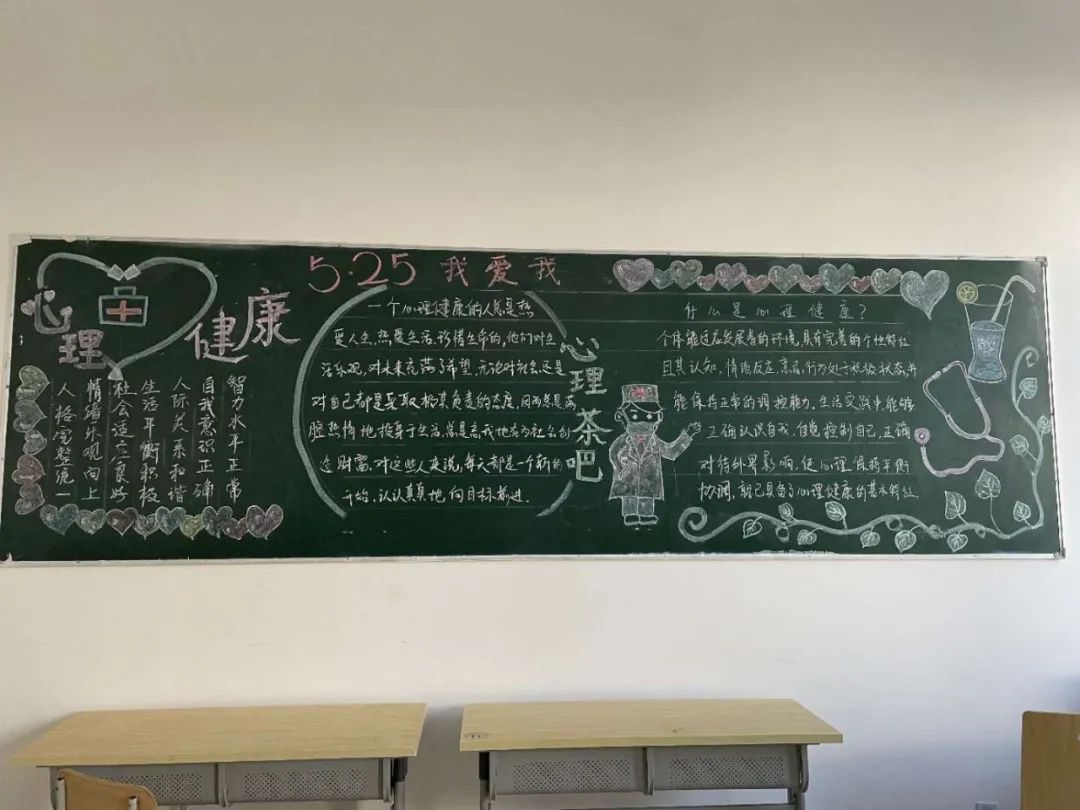 心理健康
5·25 我爱我
智力水平正常
自我意识正确
人际关系和谐
生活平衡积极
社会适应良好
情绪乐观向上
人格完整统一
一个心理健康的人总是热
爱人生,热爱生活,珍惜生命的,他们对生
活乐观,对未来充满了希望,无论对社会还是
对自己都是采取极其负责的态度,因而总是满
腔热情地投身于生活,总是高我地在为社会创
造财富,对这些人来说,每天都是一个新的
开始,认认真真地,向目标前进.
心理茶吧
什么是心理健康?
个体能适应发展着的环境,具有完善的个性特征
且其认知,情绪反应,意志,行为处于积极状态,并
能保持正常的调控能力.生活实践中,能够
正确认识自我,自觉控制自己,正确
对待外界影响,使心理保持平衡
协调,就已具备了心理健康的基本特征.